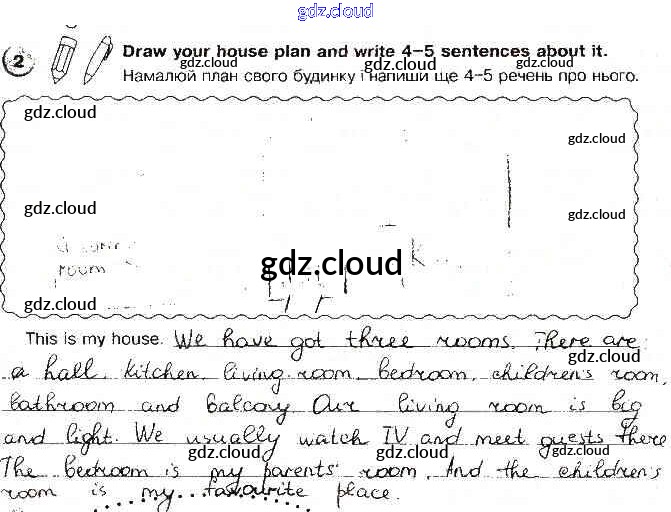 gdz.cloud
2
Draw your house plan and write 4–5 sentences about it.
Намалюй план свого будинку і напиши ще 4–5 речень про нього.
gdz.cloud
gdz.cloud
gdz.cloud
gdz.cloud
gdz.cloud
room
gdz.cloud
gdz.cloud
This is my house. We have got three rooms. There are
gdz.cloud
a hall, kitchen, living room, bedroom, children's room,
bathroom and balcony Our living room is big
and light. We usually watch TV and meet guests there
gdz.cloud gdz.cloud
The bedroom is my parents' room. And the children's
room is my favourite place.